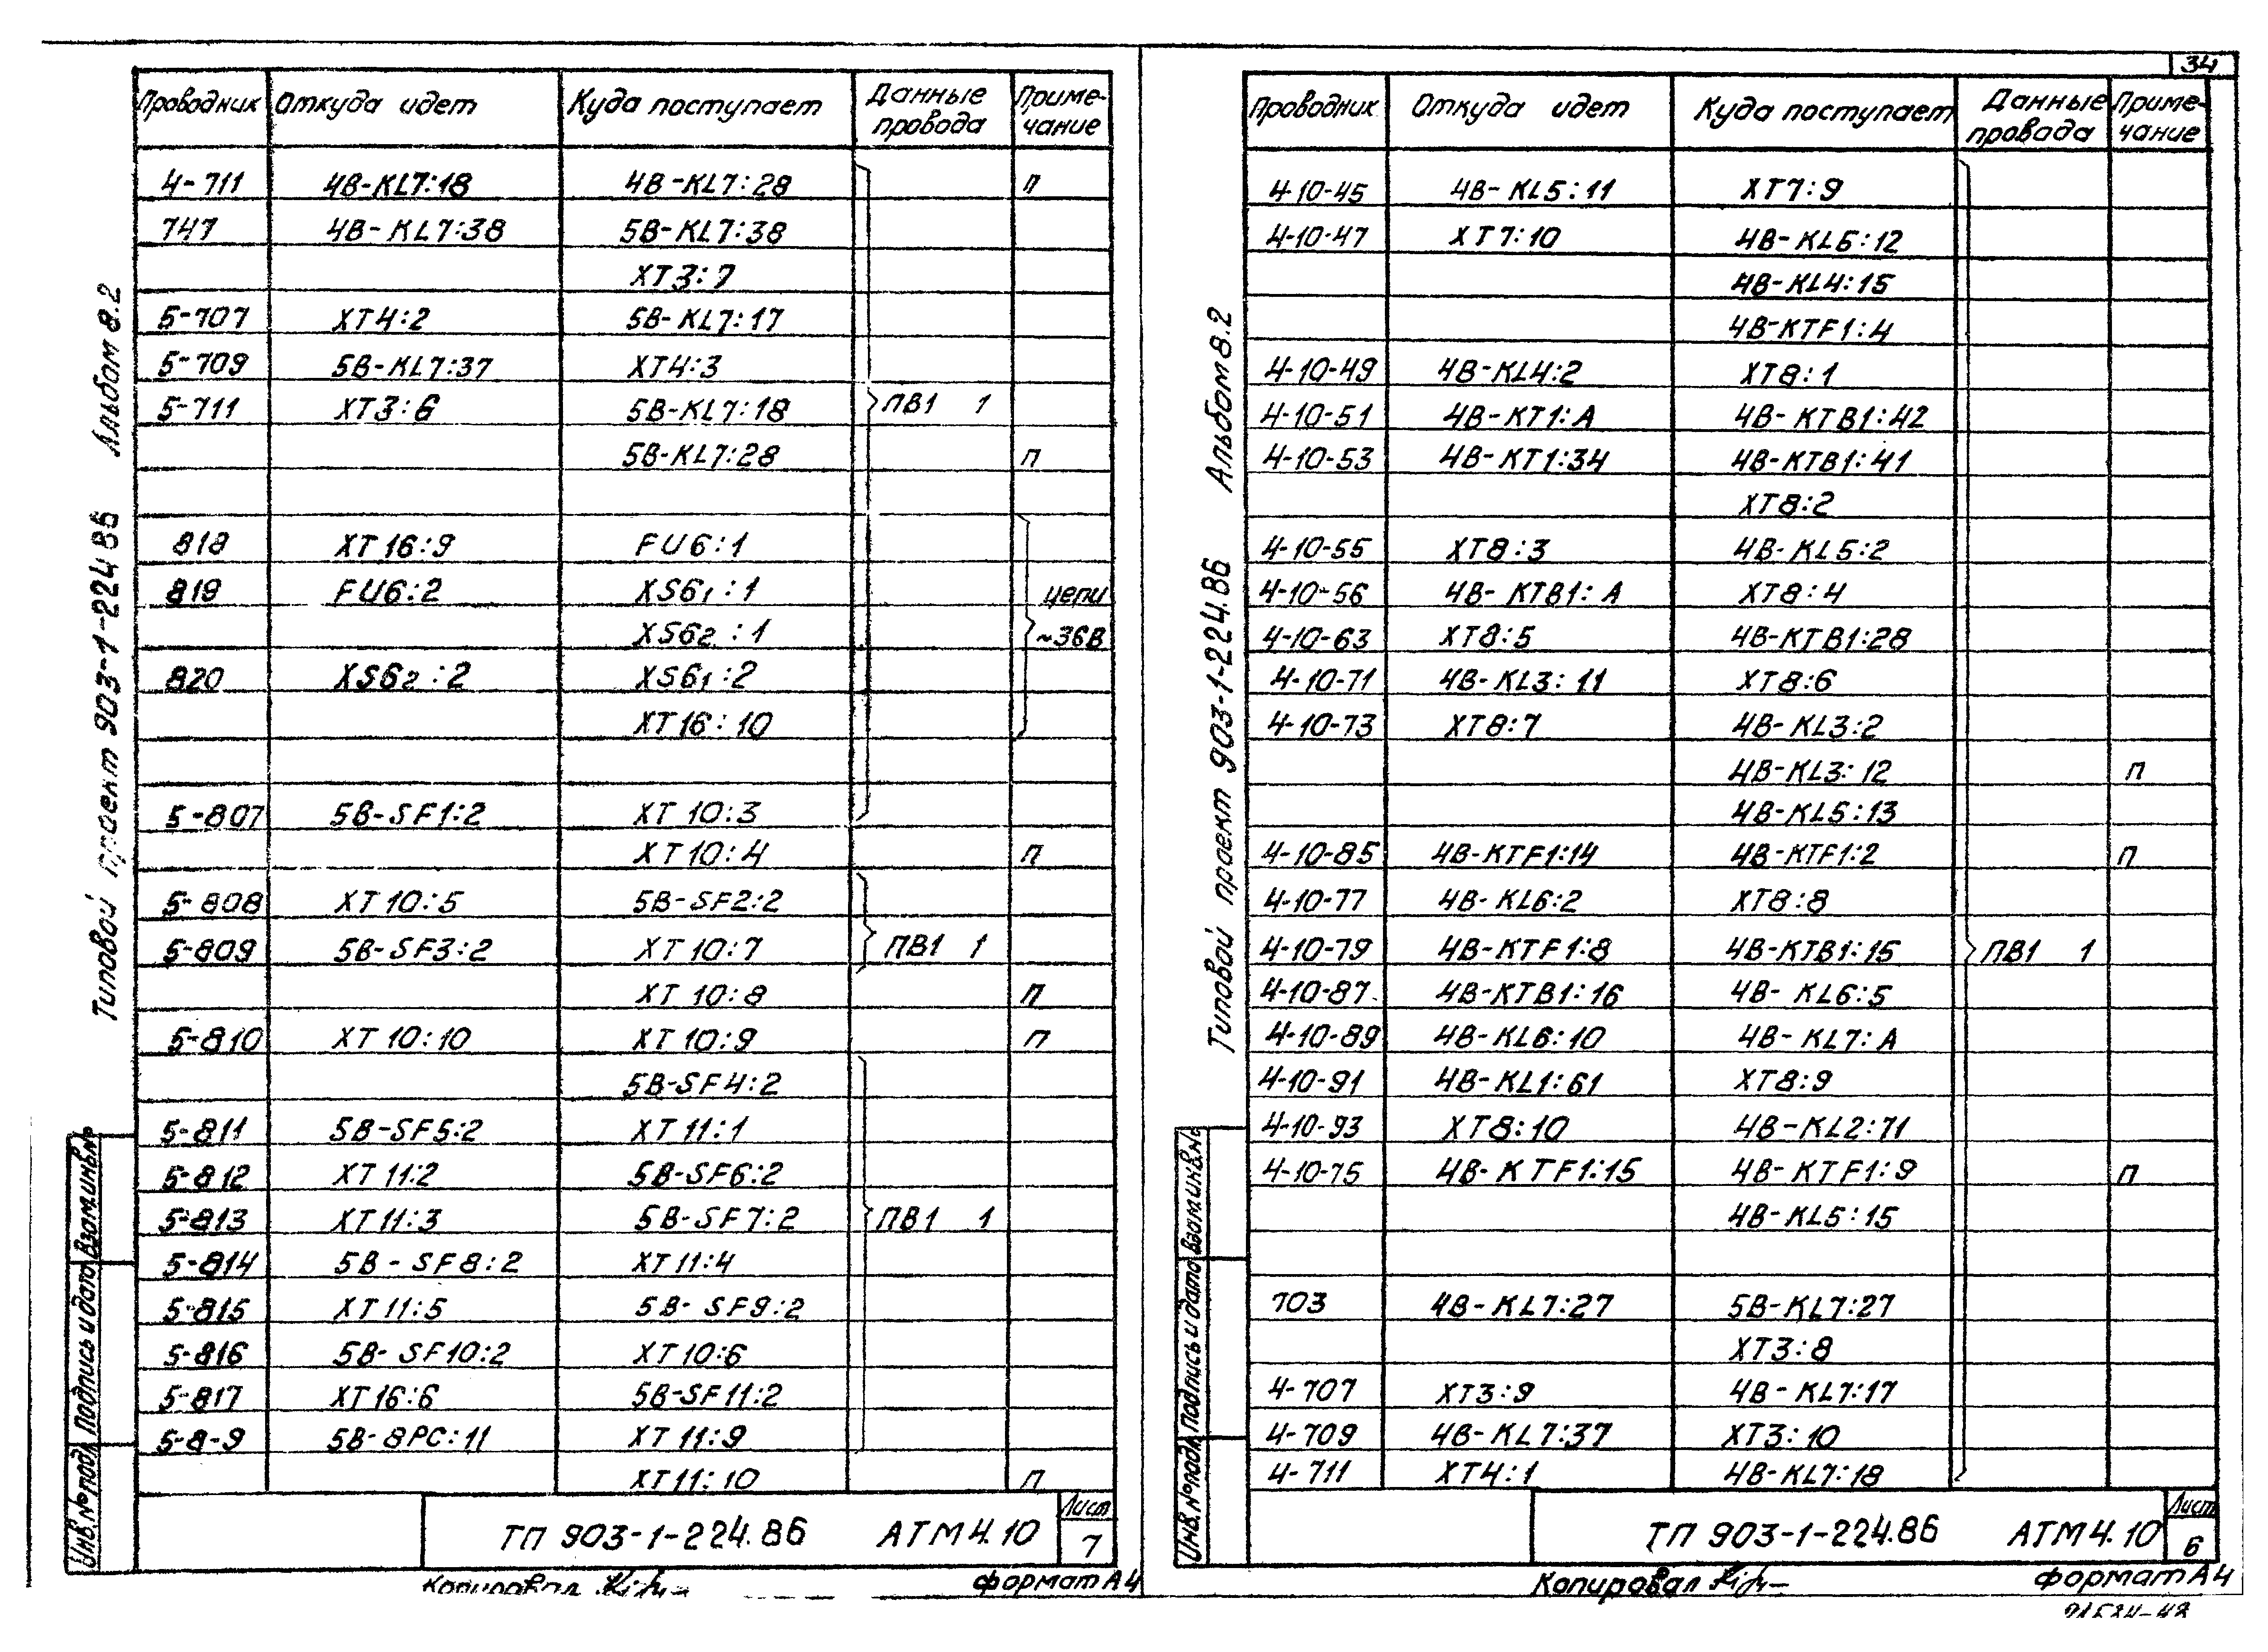 34
Проводник Откуда идет Куда поступает Данные провода Приме-чание
4-711 4В-KL7:18 4В-KL7:28 п
747 4В-KL7:38 5В-KL7:38
XT3:7
5-707 XT4:2 5В-KL7:17
5-709 5В-KL7:37 XT4:3
5-711 XT3:6 5В-KL7:18 ПВ1 1
5В-KL7:28 п
818 XT16:9 FU6:1
819 FU6:2 XS6₁:1 цепи
XS6₂:1 ~36В
820 XS6₂:2 XS6₁:2
XT16:10
5-807 5В-SF1:2 XT10:3
XT10:4 п
5-808 XT10:5 5В-SF2:2
5-809 5В-SF3:2 XT10:7 ПВ1 1
XT10:8 п
5-810 XT10:10 XT10:9 п
5В-SF4:2
5-811 5В-SF5:2 XT11:1
5-812 XT11:2 5В-SF6:2
5-813 XT11:3 5В-SF7:2 ПВ1 1
5-814 5В-SF8:2 XT11:4
5-815 XT11:5 5В-SF9:2
5-816 5В-SF10:2 XT10:6
5-817 XT16:6 5В-SF11:2
5-8-9 5В-8РС:11 XT11:9
XT11:10 п
ТП 903-1-224.86 АТМ4.10 Лист 7
Копировал
формат А4
Типовой проект 903-1-224 86 Альбом 8.2
Инв.№подл. Подпись и дата Взам.инв.№
Проводник Откуда идет Куда поступает Данные провада Приме-чание
4-10-45 4В-KL5:11 XT7:9
4-10-47 XT7:10 4В-KL5:12
4В-KL4:15
4В-KTF1:4
4-10-49 4В-KL4:2 XT8:1
4-10-51 4В-KT1:A 4В-KTB1:42
4-10-53 4В-KT1:34 4В-KTB1:41
XT8:2
4-10-55 XT8:3 4В-KL5:2
4-10-56 4В-KTB1:A XT8:4
4-10-63 XT8:5 4В-KTB1:28
4-10-71 4В-KL3:11 XT8:6
4-10-73 XT8:7 4В-KL3:2
4В-KL3:12 п
4В-KL5:13
4-10-85 4В-KTF1:14 4В-KTF1:2 п
4-10-77 4В-KL6:2 XT8:8
4-10-79 4В-KTF1:8 4В-KTB1:15 ПВ1 1
4-10-87 4В-KTB1:16 4В-KL6:5
4-10-89 4В-KL6:10 4В-KL7:A
4-10-91 4В-KL1:61 XT8:9
4-10-93 XT8:10 4В-KL2:71
4-10-75 4В-KTF1:15 4В-KTF1:9 п
4В-KL5:15
703 4В-KL7:27 5В-KL7:27
XT3:8
4-707 XT3:9 4В-KL7:17
4-709 4В-KL7:37 XT3:10
4-711 XT4:1 4В-KL7:18
ТП 903-1-224.86 АТМ4.10 Лист 6
Копировал
формат А4
Типовой проект 903-1-224.86 Альбом 8.2
Инв.№подл. Подпись и дата Взам.инв.№